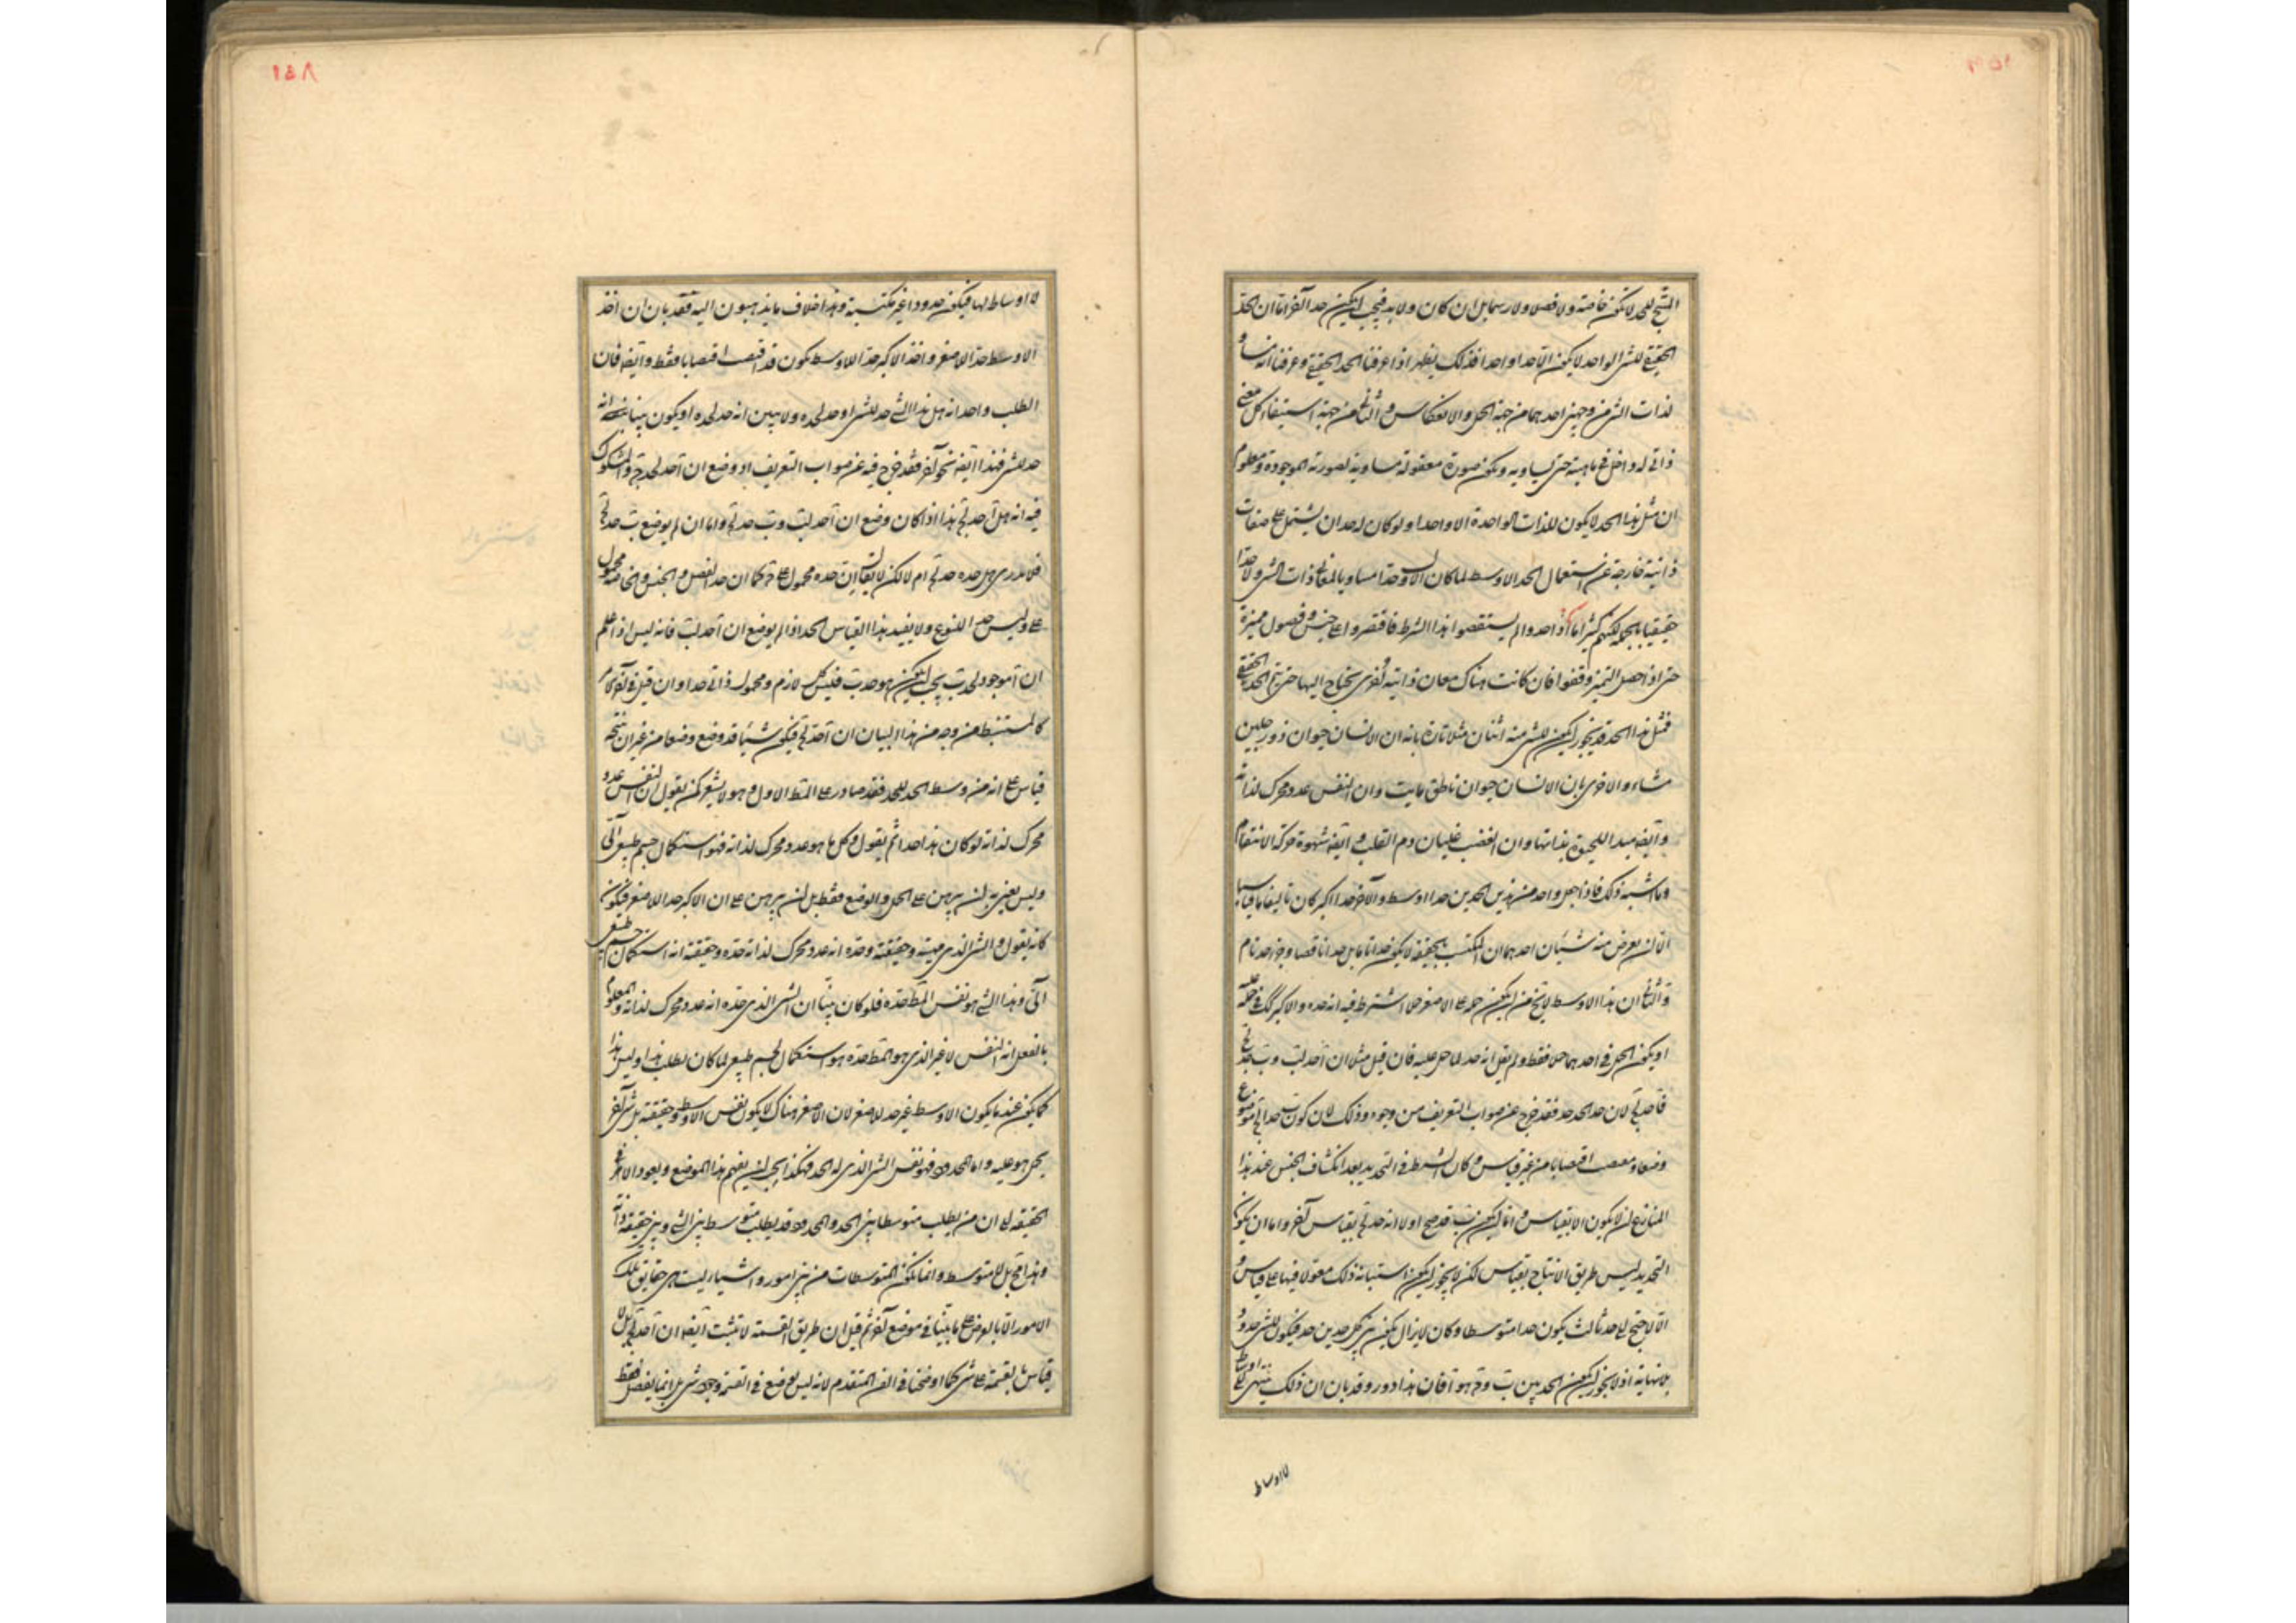 المنتج للحد لا يكون خاصة ولا فصلا ولا رسما بل ان كان ولا بد فيجب ان يكون حدا آخر اما ان الحد
الحقيقي للشئ الواحد لا يكون الا حدا واحدا فذلك يظهر اذا عرفنا الحد الحقيقي وعرفنا انه مساو
لذات الشئ من وجهين احدهما من جهة الحمل والانعكاس والثاني من جهة استيفاء كل معنى
ذاتي له داخل في ماهيته حتى يساويه ويكون صورة معقولة مساوية لصورته الموجودة ومعلوم
ان مثل هذا الحد لا يكون للذات الواحدة الا واحدا ولو كان لحد ان يشتمل على صفات
ذاتية خارجة عن استعمال الحد الاوسط لما كان الاوسط حدا مساويا لمعاني ذات الشئ ولا حدا
حقيقيا بالجملة لكنهم كثيرا ما اذا حدوا لم يستقصوا هذا الشرط فاقتصروا على جنس وفصول مميزة
حتى اذا حصل التميز وقفوا فان كانت هناك معان ذاتية اخرى يحتاج اليها حتى يتم الحد الحقيقي
فمثل هذا الحد قد يجوز ان يكون للشئ منه اثنان مثلا تارة بانه ان الانسان حيوان ذو رجلين
مشاء والاخرى بان الانسان حيوان ناطق مايت وان النفس عدد محرك لذاته
وايضا مبدا للحيوة بذاتها وان الغضب غليان دم القلب وايضا شهوة حركة الانتقام
وما اشبه ذلك فاذا جعل واحد من هذين الحدين حدا اوسط والآخر حدا اكبر كان تاليفا ما قياسيا
الا انه يعرض منه شيئان احدهما ان المكتسب بالحقيقة لا يكون حدا تاما بل حدا ناقصا وجزء حد تام
والثاني ان هذا الاوسط لا يخ من ان يكون حمله على الاصغر حملا اشترط فيه انه حده والاكبر كذلك في حمله عليه
او يكون الحمل في احدهما حملا فقط ولم يقل انه حد لما حمل عليه فان قيل مثلا ان آ حد لب وب حد لج
فا حد لج لان حد الحد حد فقد خرج عن صواب التعريف من وجوه وذلك لان كون ب حدا لج موضوع
وضعا ومغصب اغتصابا من غير قياس وكان الشرط في التحديد بعد انكشاف الجنس عند هذا
المنازع ان لا يكون الا بقياس وانما يكون ب قد صح اولا انه حد لج بقياس آخر واما ان يكون
التحديد ليس طريق الانتاج بقياس لكن لا يجوز ان يكون استبانة ذلك معقولا فيها على قياس و
الا لاحتيج الى حد ثالث يكون حدا متوسطا وكان لا يزال يكون بين كل حدين حد فيكون للشئ حدود
بلا نهاية اذ لا يجوز ان يكون الحد بين ب وج هو آ فان هذا دور وقد بان ان ذلك ينتهي الى اوساط
لا اوساط
١٥٨
لا اوساط لها فيكون حدودا غير مكتسبة وهذا خلاف ما يذهبون اليه فقد بان ان اخذ
الاوسط حد الاصغر واخذ الاكبر حد الاوسط يكون قد اغتصب اغتصابا فقط وايضا فان
الطلب واحد انه هل هذا الشئ حد للشئ او حد لحده ولا يبين انه حد لحده او يكون بينا بنفسه انه
حد للشئ فهذا ايضا نحو آخر فقد خرج فيه عن صواب التعريف اذ وضع ان آ حد لحد ج والمشكوك
فيه انه هل آ حد لج هذا اذا كان وضع ان آ حد لب وب حد لج واما ان لم يوضع ب حد لج
فلا يدرى هل حده حد لج ام لا لكن لا يقال ان حده محمول على ج كما ان حد الفصل والجنس والخاصة محمول
على وليس حد للنوع ولا يفيد هذا القياس الحد اذا لم يوضع ان آ حد لب فانه ليس اذا علم
ان آ موجود لحد ب يجب ان يكون هو حد ب فليس كل لازم ومحمول ذاتي حدا وان قيل في آخر كلامه
كالمستنبط من وجه من هذا البيان ان آ حد لج فيكون شيئا قد وضع وضعا من غير ان ينتجه
قياس على انه من وسط الحد للحد فقد صادر على المط الاول وهو لا يشعر كمن يقول ان النفس عدد
محرك لذاته لو كان هذا حدا ثم يقول وكل ما هو عدد محرك لذاته فهو استكمال جسم طبيعي آلي
وليس يعني به ان يبرهن على الحمل والوضع فقط بل ان يبرهن على ان الاكبر حد للاصغر فيكون
كانه يقول والشئ الذي مهيته وحقيقته وحده انه عدد محرك لذاته حده وحقيقته انه استكمال جسم طبيعي
آلي وهذا الشئ هو نفس المط حده فلو كان بينا ان الشئ الذي حده انه عدد محرك لذاته والمعلوم
بالفعل انه النفس لا غير الذي هو المط حده هو استكمال لجسم طبيعي لما كان يطلب هذا وليس هذا
كما يكون عند ما يكون الاوسط غير حد للاصغر لان الاصغر هناك لا يكون نفس الاوسط وحقيقته بل شئ آخر
يحمل هو عليه واما المحدود فهو نفس الشئ الذي له الحد فهكذا يجب ان يفهم هذا الموضع ويعود الامر في
الحقيقة الى ان من يطلب متوسطا بين الحد والمحدود قد يطلب متوسطا بين الشئ وبين حقيقة ذاته
وهذا مح بل لا متوسط وانما يكون المتوسطات من بين امور واشياء ليست هي حقايق تلك
الامور الا بالعرض على ما بينا في موضع آخر ثم قيل ان طريق القسمة لا تثبت ايضا ان آ حد لج بل لا
قياس بالقسمة على شئ كما اوضحنا في الفن المتقدم لانه ليس يوضع في القسمة وجود شئ بل انما يفصل فقط